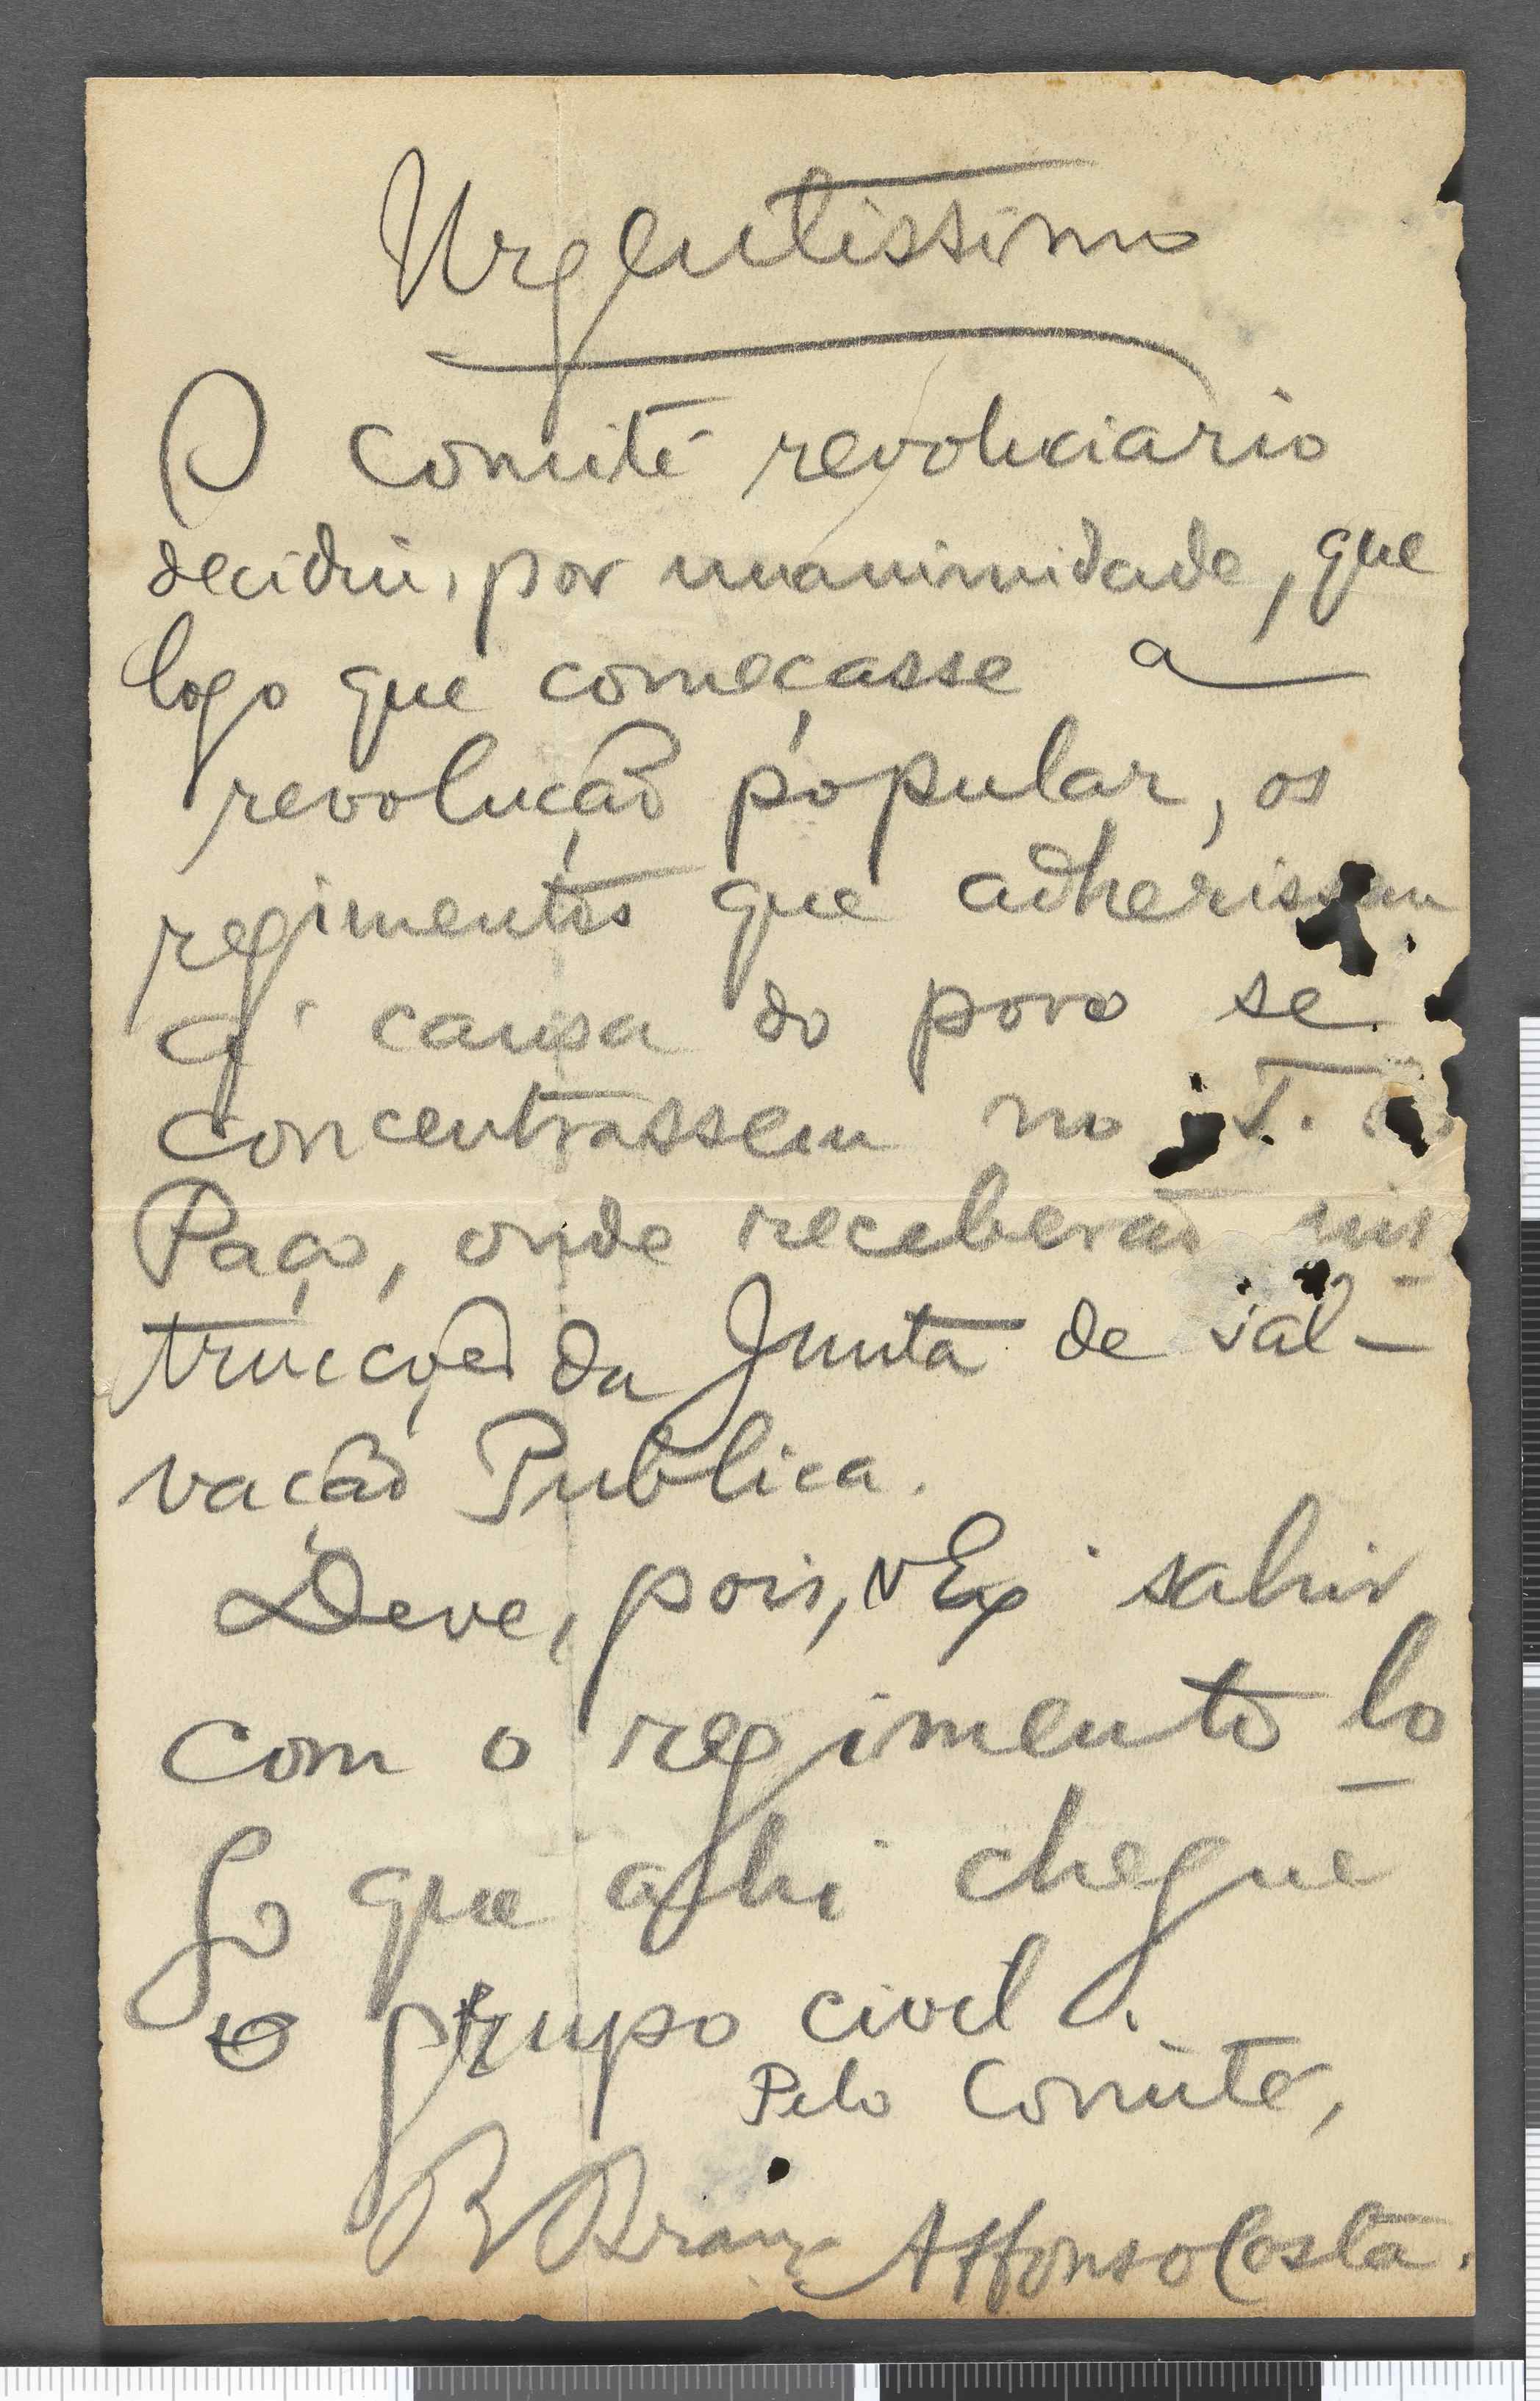 Urgentissimo
O comité revoluciario
decidiu, por unanimidade, que
logo que começasse a
revolução popular, os
regimentos que adherissem
á causa do povo se
concentrassem no T. do
Paço, onde receberão ins-
trucções da Junta de Sal-
vação Publica.
Deve, pois, V Ex sahir
com o regimento lo-
go que ahi chegue
o grupo civil.
Pelo Comité,
Affonso Costa.